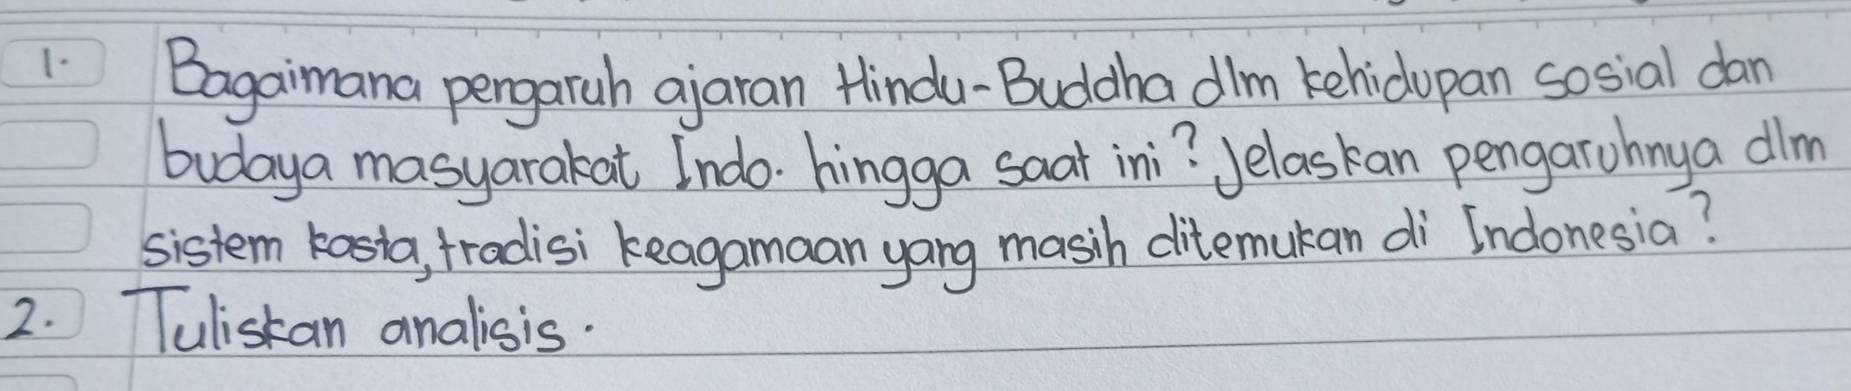 1. Bagaimana pengaruh ajaran Hindu-Buddha dlm kehidupan sosial dan
budaya masyarakat Indo. hingga saat ini? Jelaskan pengaruhnya dlm
sistem kasta, tradisi keagamaan yang masih ditemukan di Indonesia?
2. Tuliskan analisis.